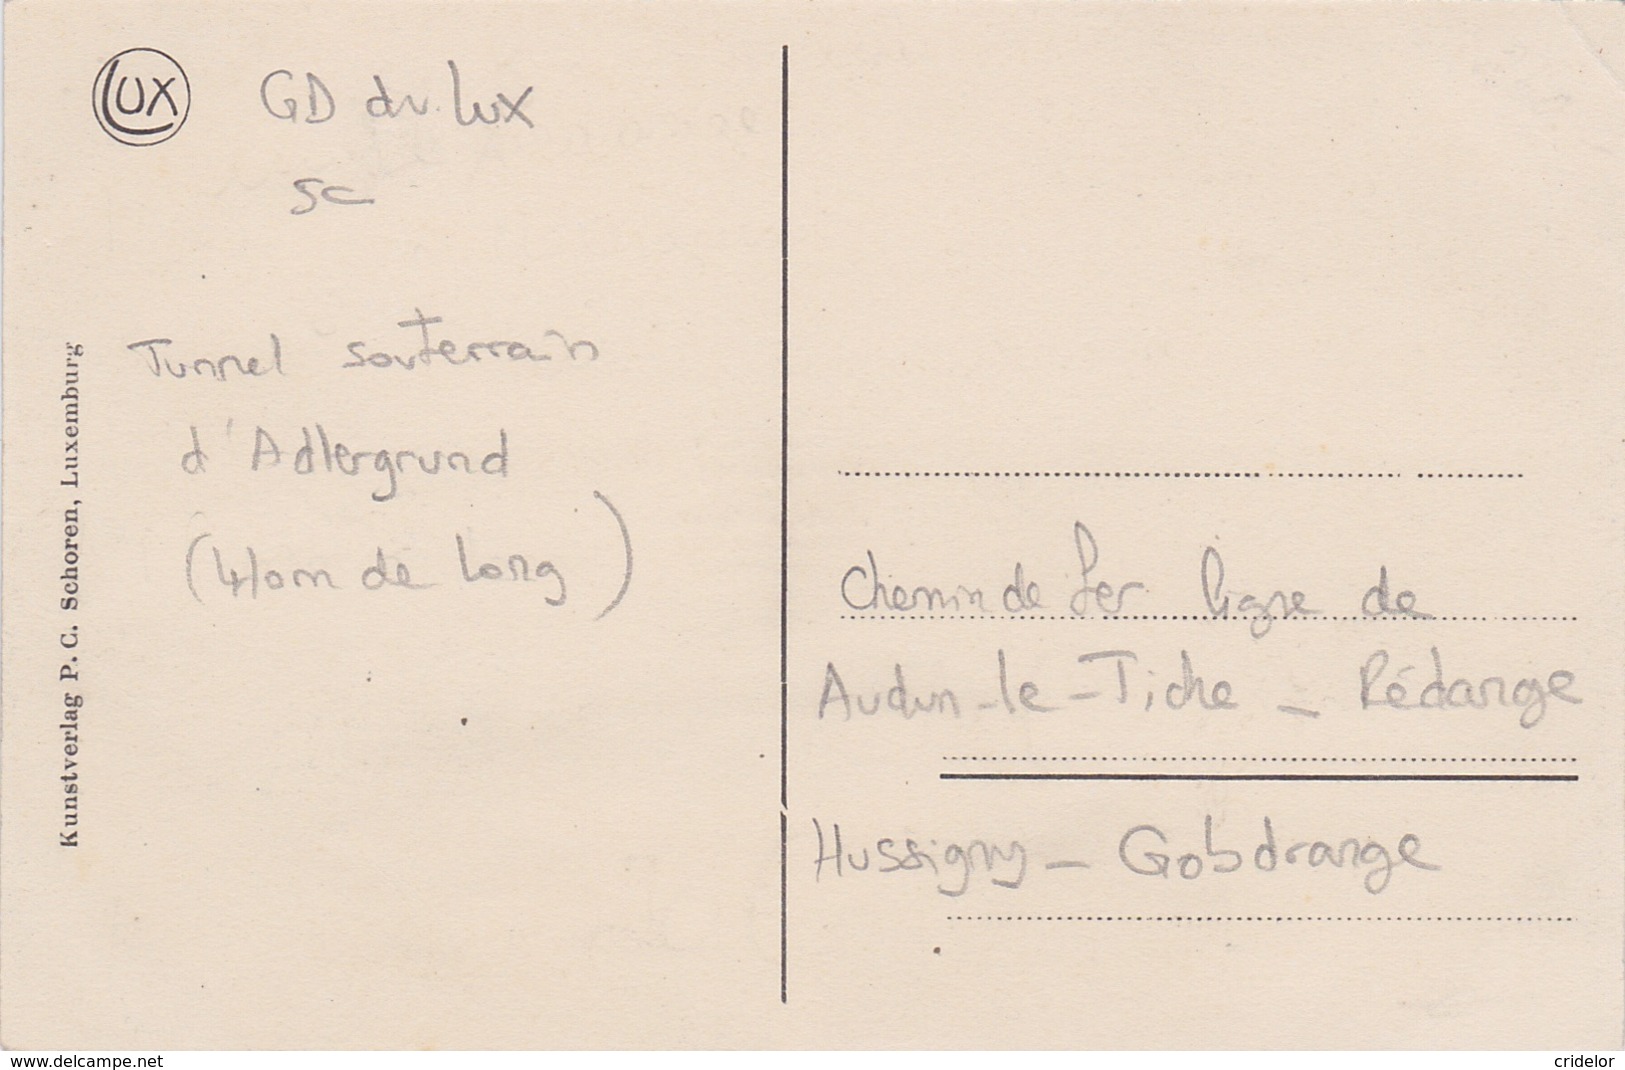 LUX
GD du Lux
SC
Tunnel souterrain
d'Adlergrund
(410m de long)
Kunstverlag P. C. Schoren, Luxemburg
Chemin de fer ligne de
Audun-le-Tiche - Rédange
Hussigny - Gobdrange
www.delcampe.net
cridelor